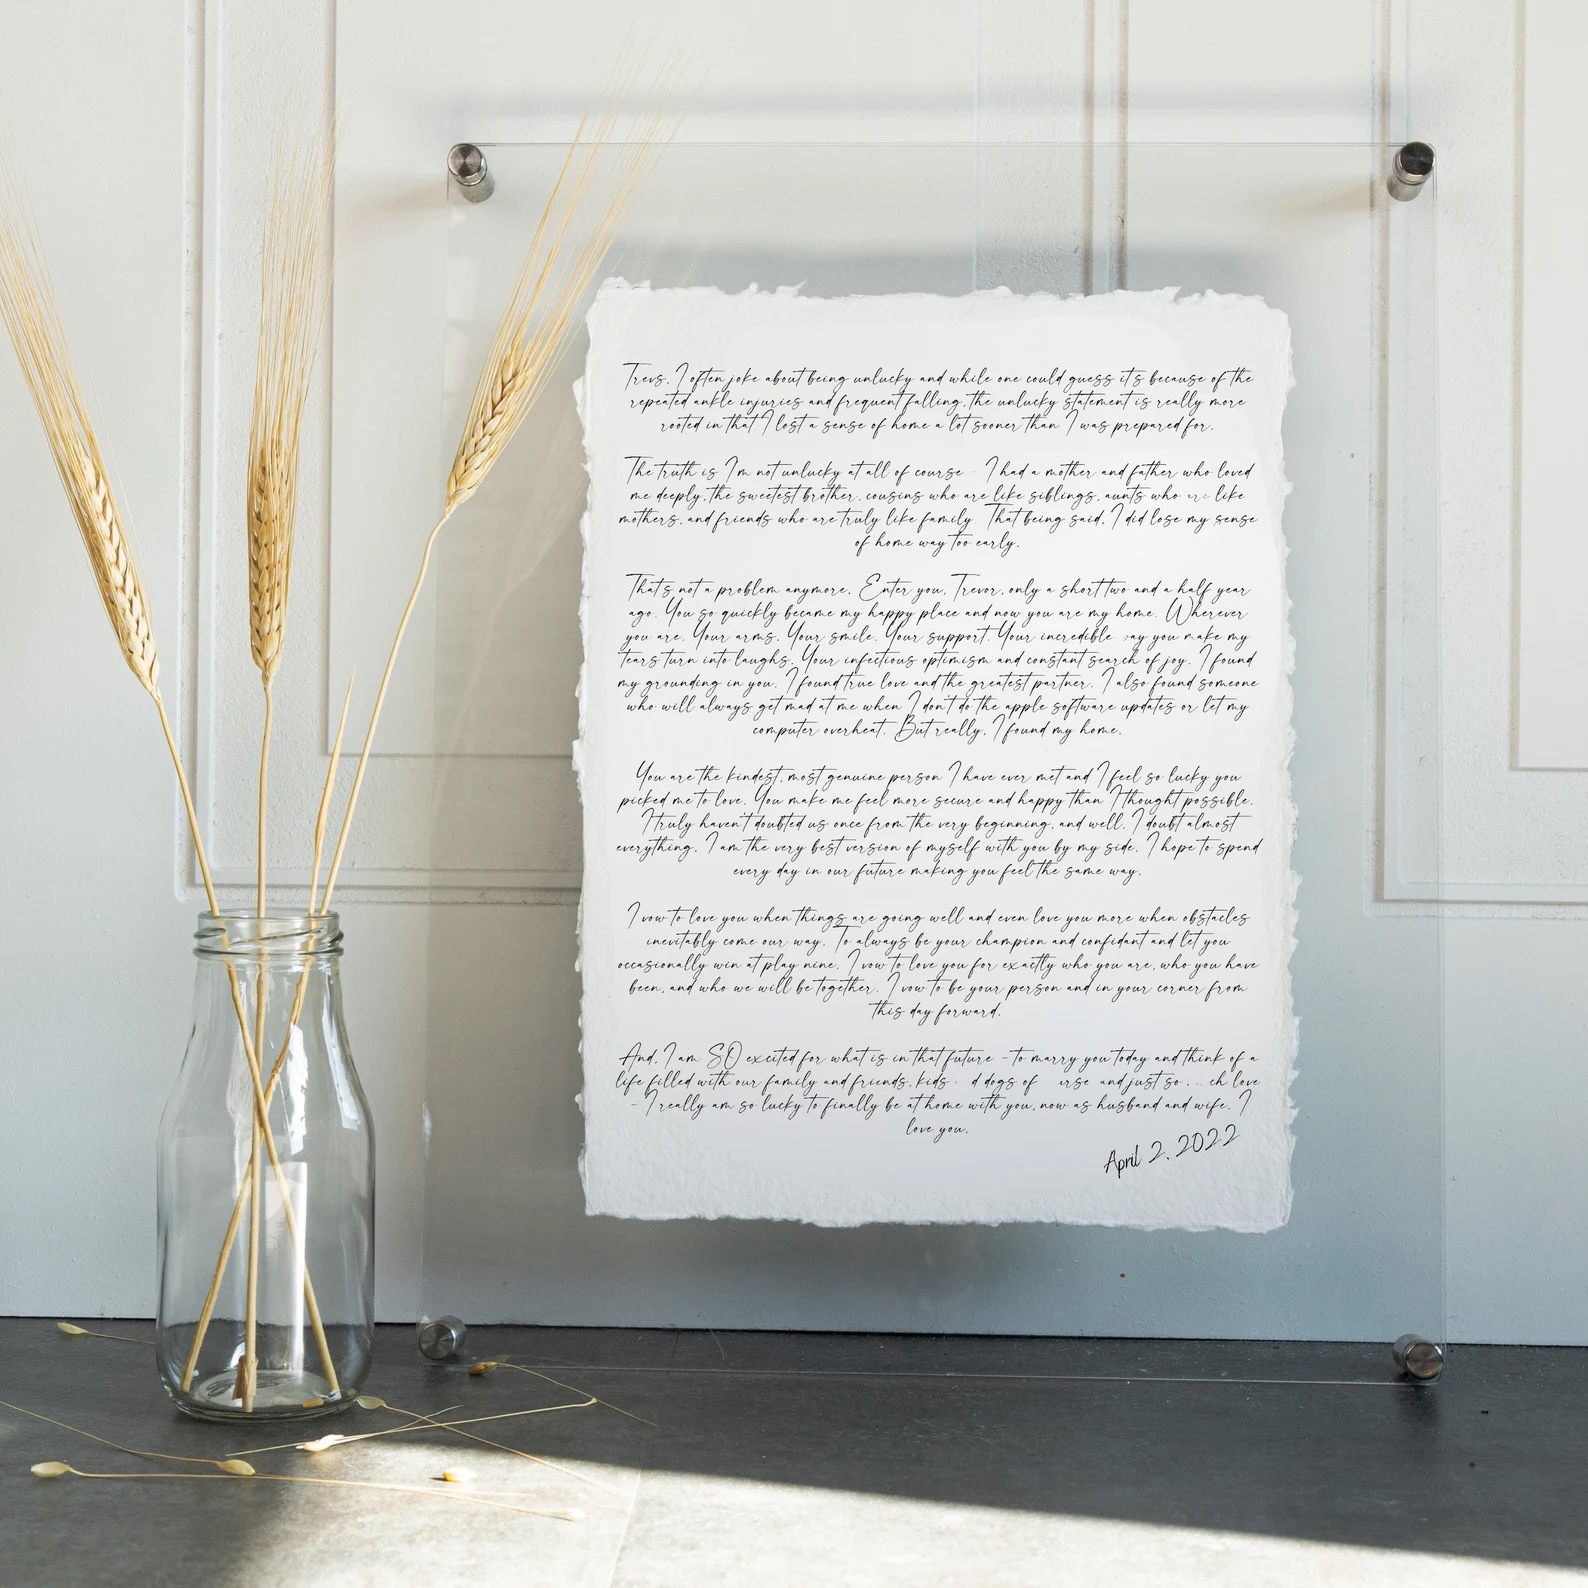 Trevs, I often joke about being unlucky and while one could guess it's because of the
repeated ankle injuries and frequent falling, the unlucky statement is really more
rooted in that I lost a sense of home a lot sooner than I was prepared for.
The truth is I'm not unlucky at all of course - I had a mother and father who loved
me deeply, the sweetest brother, cousins who are like siblings, aunts who are like
mothers, and friends who are truly like family. That being said, I did lose my sense
of home way too early.
That's not a problem anymore. Enter you, Trevor, only a short two and a half year
ago. You so quickly became my happy place and now you are my home. Wherever
you are. Your arms. Your smile. Your support. Your incredible way you make my
tears turn into laughs. Your infectious optimism and constant search of joy. I found
my grounding in you. I found true love and the greatest partner. I also found someone
who will always get mad at me when I don't do the apple software updates or let my
computer overheat. But really, I found my home.
You are the kindest, most genuine person I have ever met and I feel so lucky you
picked me to love. You make me feel more secure and happy than I thought possible.
I truly haven't doubted us once from the very beginning, and well, I doubt almost
everything. I am the very best version of myself with you by my side. I hope to spend
every day in our future making you feel the same way.
I vow to love you when things are going well and even love you more when obstacles
inevitably come our way. To always be your champion and confidant and let you
occasionally win at play nine. I vow to love you for exactly who you are, who you have
been, and who we will be together. I vow to be your person and in your corner from
this day forward.
And, I am SO excited for what is in that future - to marry you today and think of a
life filled with our family and friends, kids d dogs of urse and just so ch love
- I really am so lucky to finally be at home with you, now as husband and wife. I
love you.
April 2, 2022